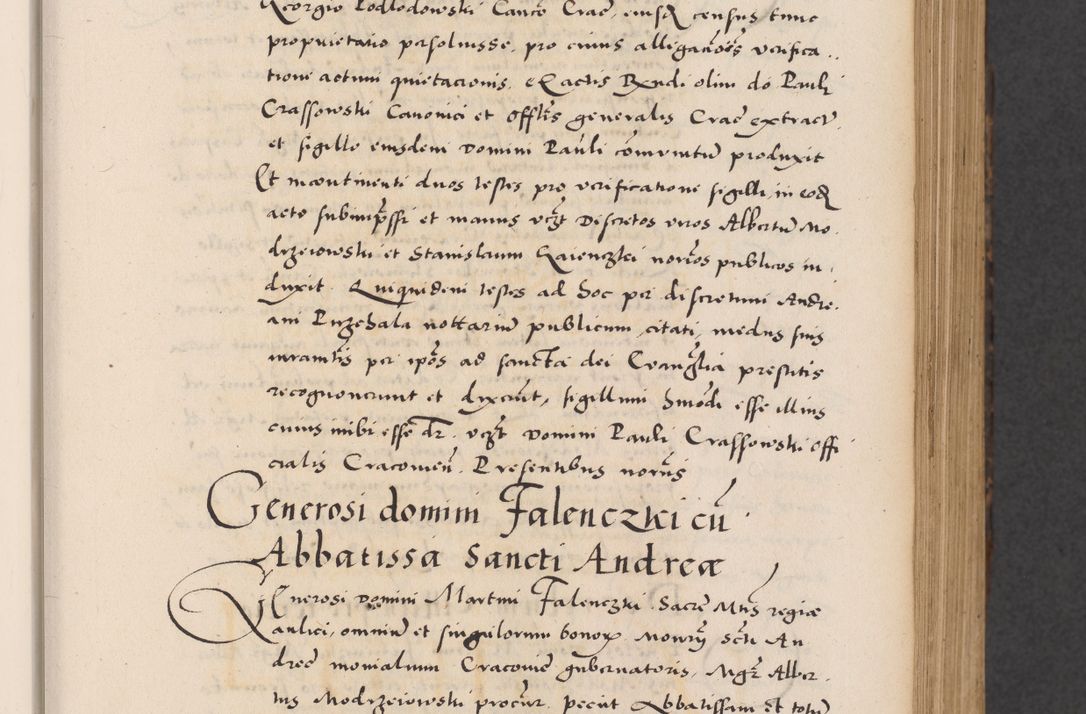 Georgio Podlodowski Canco Crac̃, eiusq census tunc
proprietario persolvisse. pro cuius allegac̃oẽs verifica
tione actum quietacionis. ex actis Rx̃ndi olim do Pauli
Crassowski Canonici et Offlĩs generalis Crac̃ extract̃.
et sigillo eiusdem Domini Pauli com̃unitũ produxit
Et incontinenti duos testes pro verificatione sigilli, in eod
acto subimp̃ssi et manus vczt Discretos viros Albertũ Mo
drzeiowski et Stanislaum Kaienczki nor̃ios publicos in
duxit. Quiquidem testes ad hoc per discretum Andre
am Przechala nottariũ publicum, citati, medys suis
iuramẽtis per ip̃os ad sancta dei Evangl̃ia prestitis
recognoverunt et dixer̃ut, sigillum hm̃odi esse illius
cuius inibi esse dr̃. vczt Domini Pauli Crassowski offi
cialis Cracovieñ. Presentibus nor̃iis
Generosi domini Falenczki cũ
Abbatissa Sancti Andreæ
Generosi Domini Martini Falenczki. Sacre Mt̃is regiæ
aulici, omniũ et singulorum bonoꝝ Mon̄ry Sct̃i An
dreẽ monialium Cracovie gubernatoris, Mgr̃ Alber
tus Modrzeiowski procur̃. peciit Abbatissam et totũ